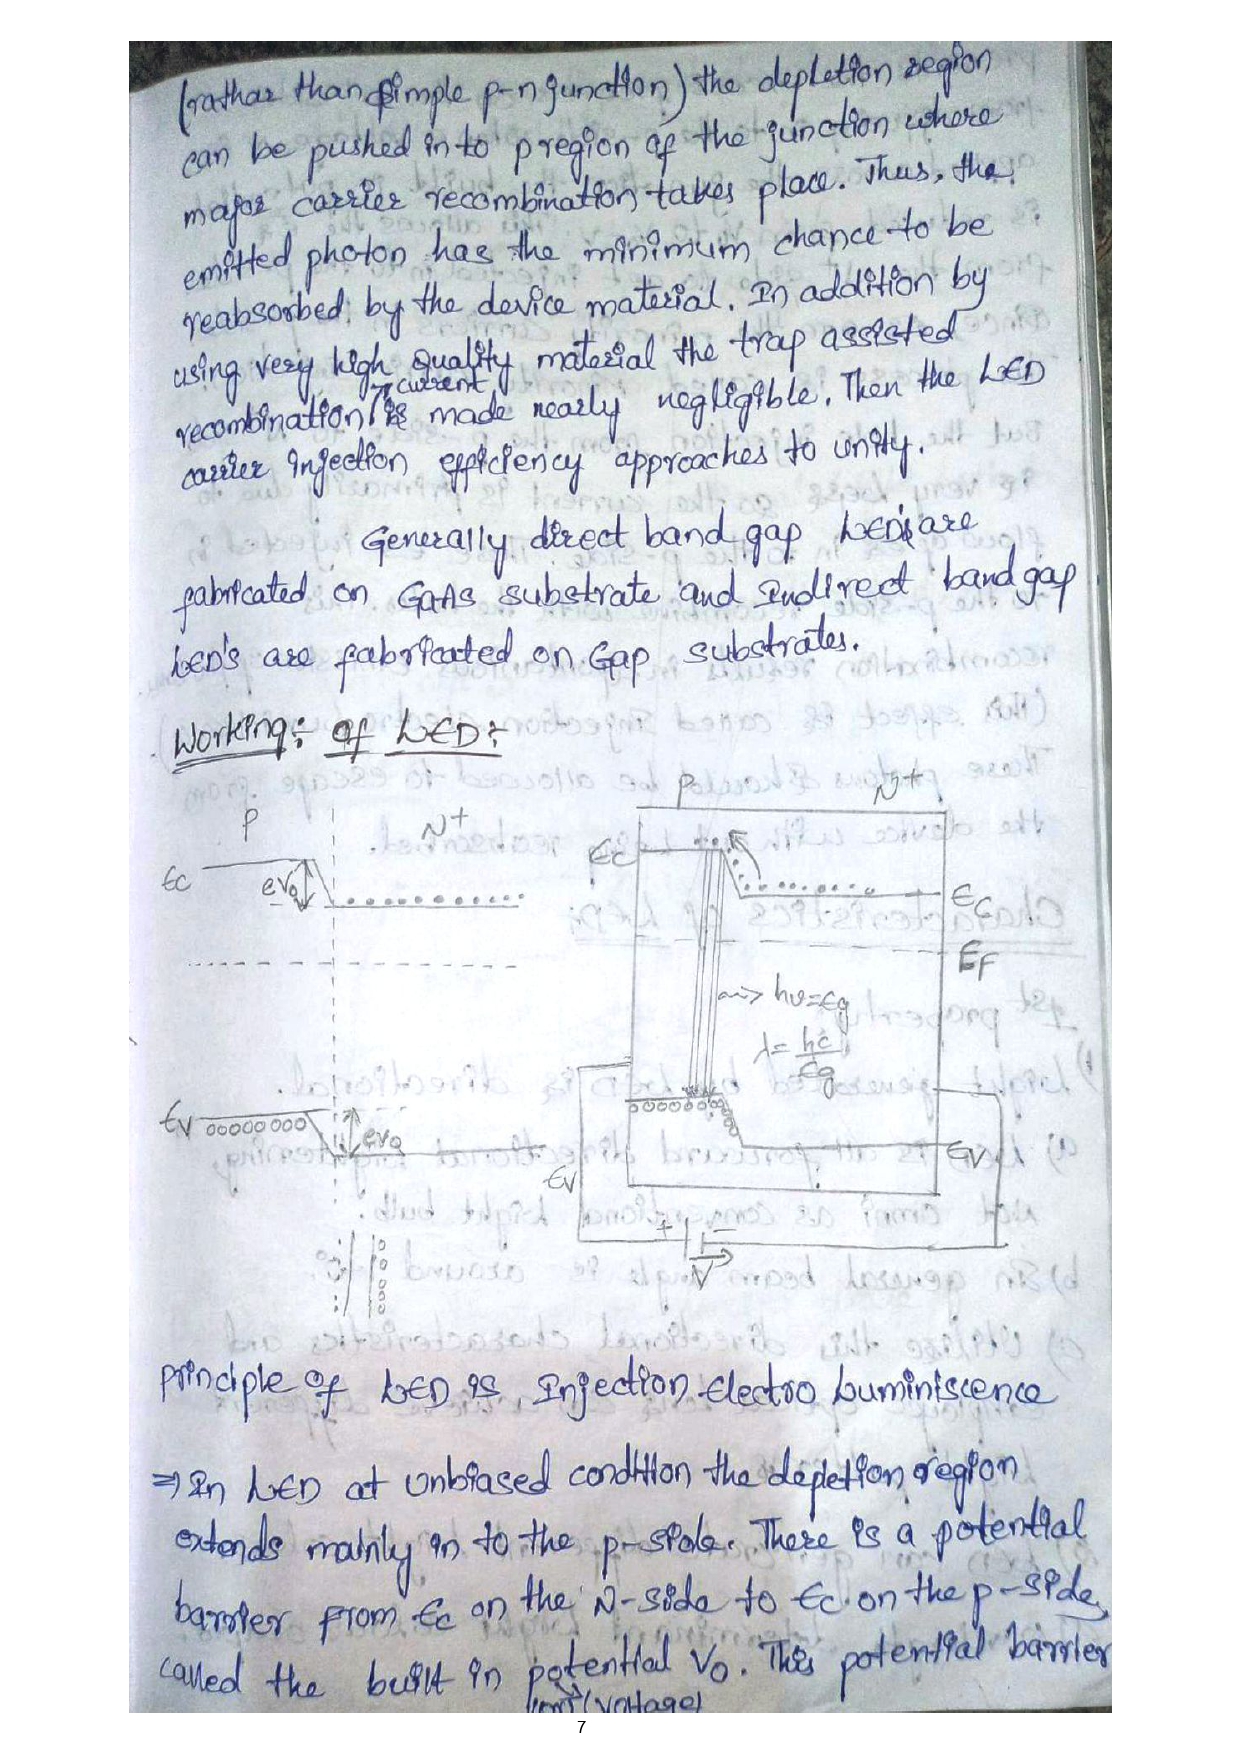 (rathar than simple p-n junction) the depletion region
can be pushed in to p region of the junction where
major carrier recombination takes place. Thus, the
emitted photon has the minimum chance to be
reabsorbed by the device material. In addition by
using very high quality material the trap assisted
current
recombination is made nearly negligible. Then the LED
carrier injection efficiency approaches to unity.
Generally direct band gap LED's are
fabricated on GaAs substrate and Indirect band gap
LED's are fabricated on Gap substrates.
Working: of LED:
P N+
P N+
Ec eV0
Ec
Ec
EF
hν=Eg
λ= hc
Eg
Ev eV0
Ev
Ev
+ −
V
principle of LED is Injection Electro Luminiscence
⇒ In LED at unbiased condition the depletion region
extends mainly in to the p-side. There is a potential
barrier from Ec on the N-side to Ec on the p-side,
called the built in potential V0. This potential barrier
(voltage)
7